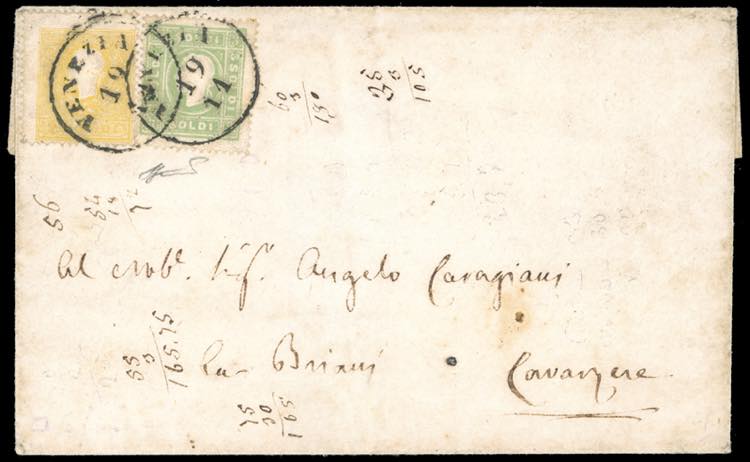 VENEZIA
19
VENEZIA
19
11
SOLDI
SOLDI
60
3
180
35
3
105
56
54
18
72
Al Nob.e Sig.r Angelo Caragiani
55
3
165.75
Ca Briani
Cavarzere
75
90
165